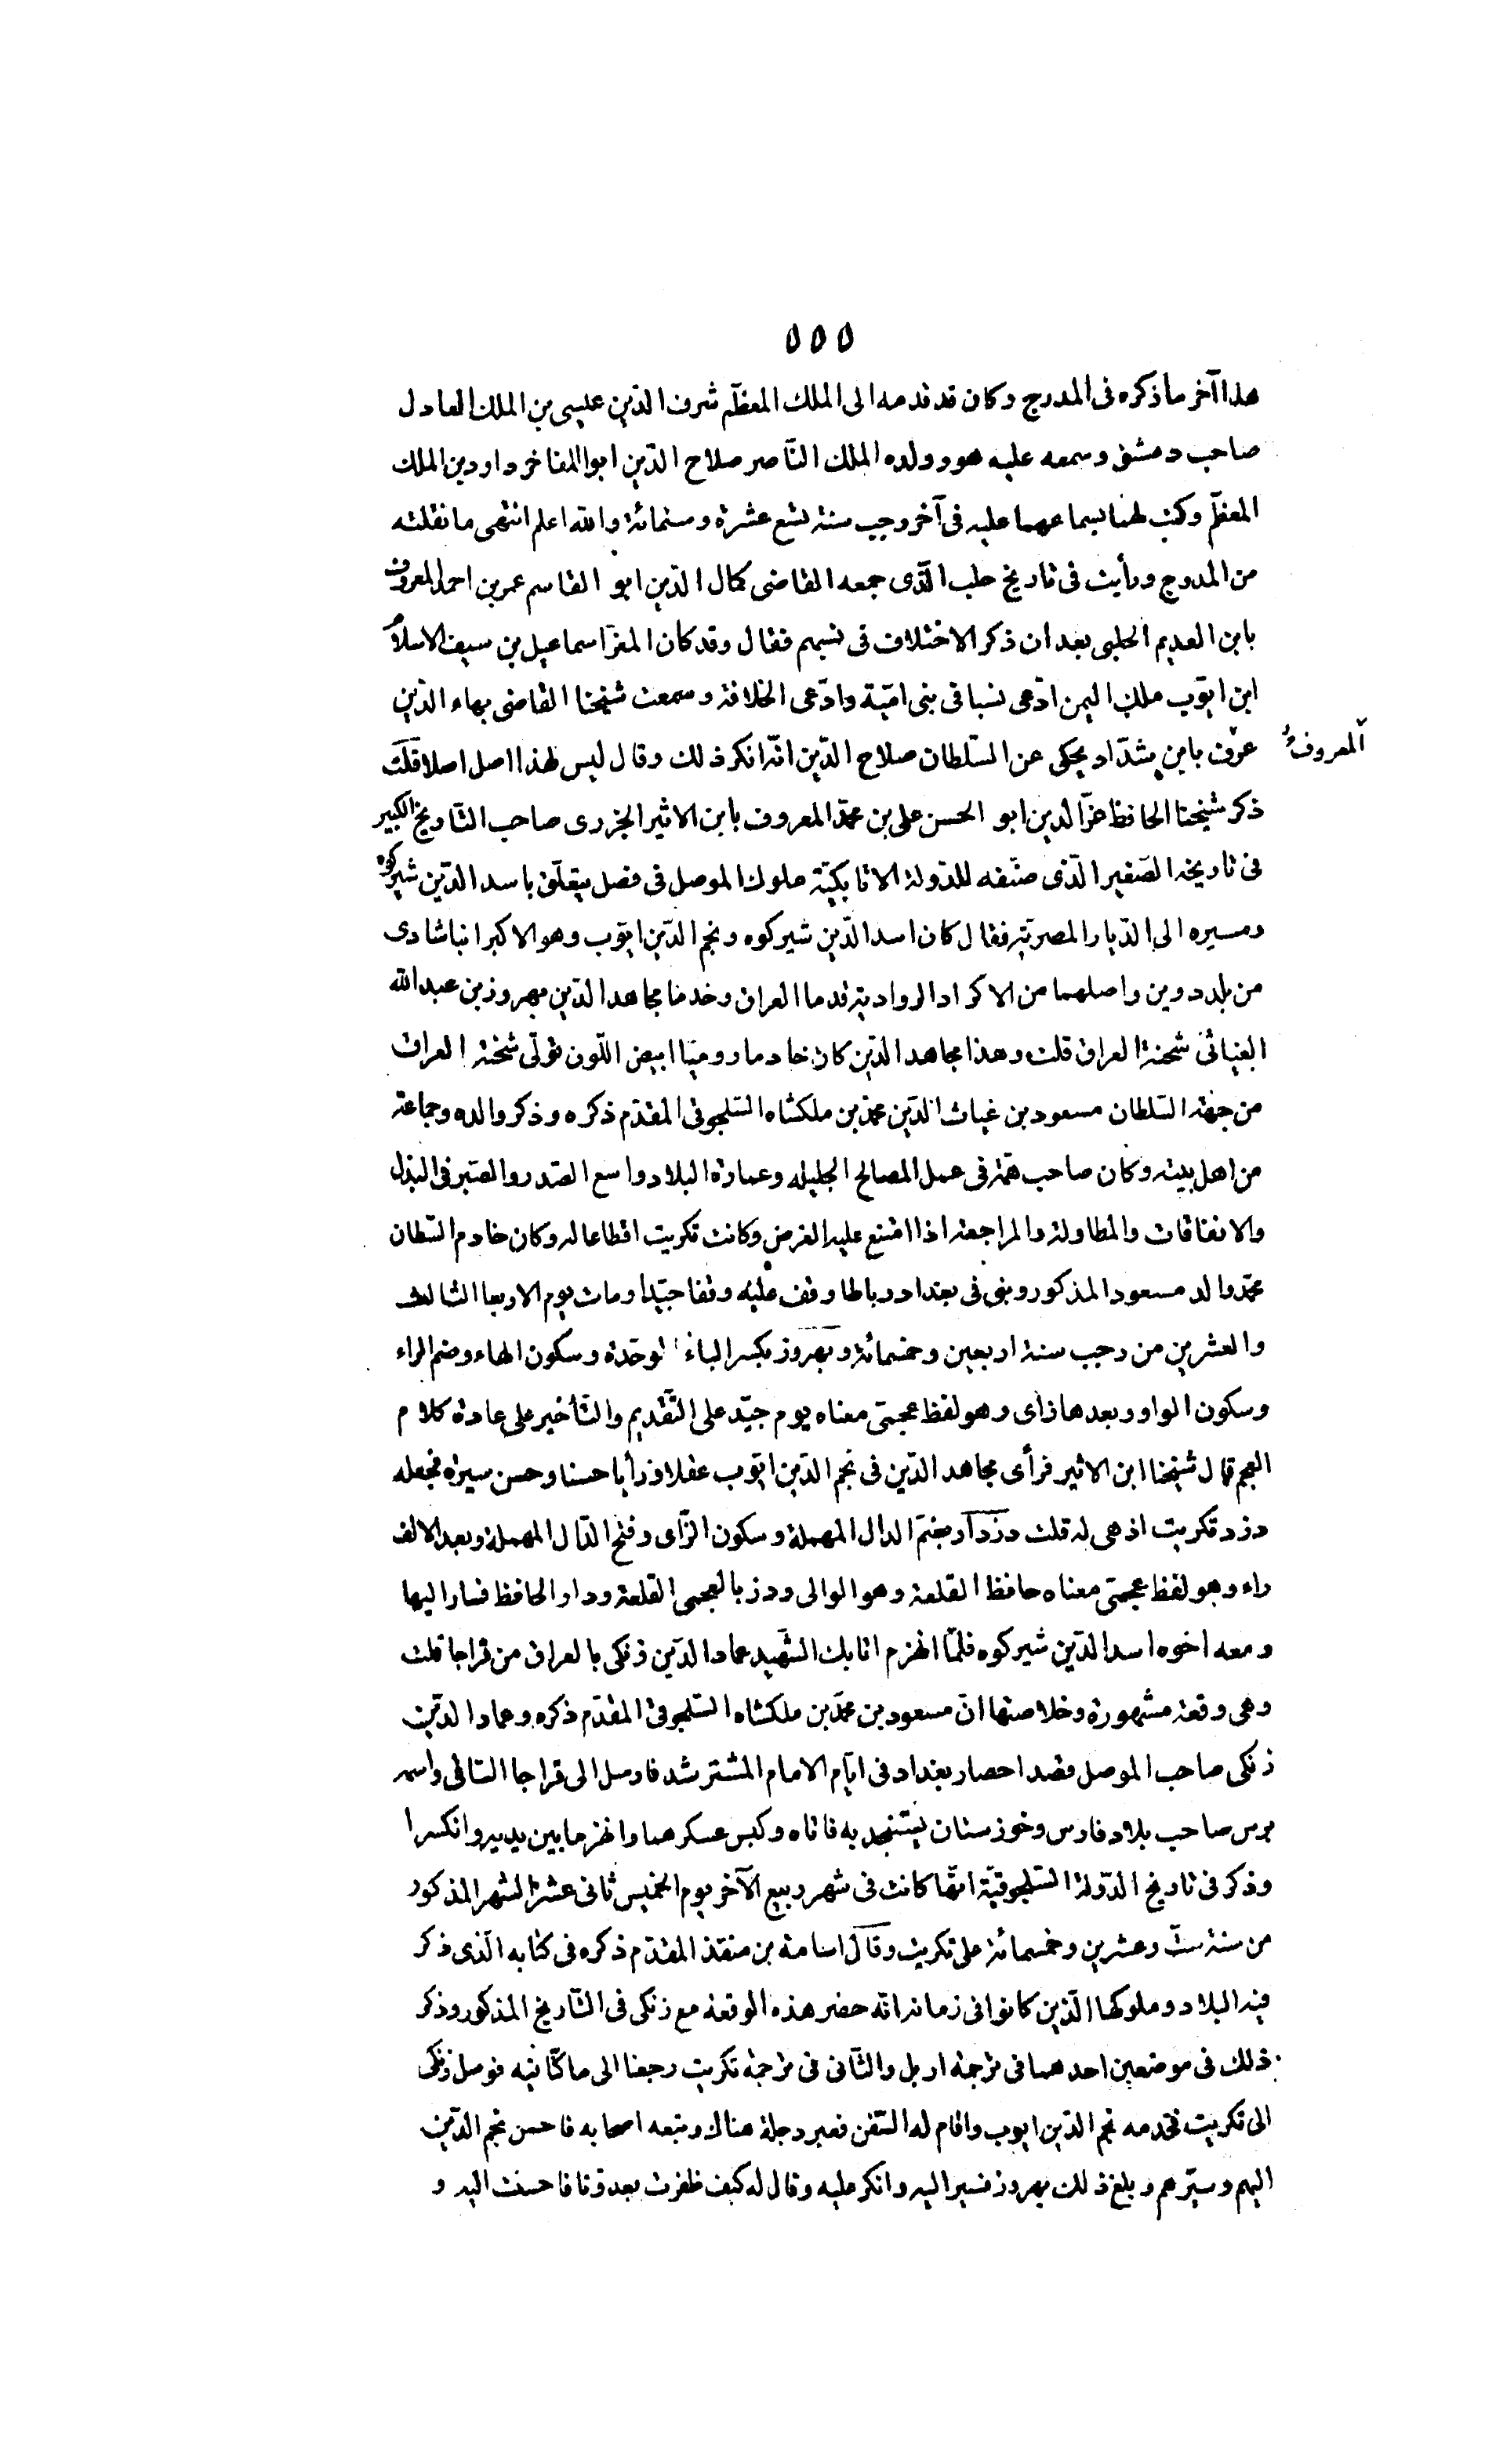 ٥٥٥
هذا آخر ما ذكره فى المدرج وكان قد قدمه الى الملك المعظّم شرف الدّين عيسى بن الملك العادل
صاحب دمشق وسمعه عليه هو وولده الملك النّاصر صلاح الدّين ابو المفاخر داود بن الملك
المعظّم وكتب لهما بسماعهما عليه فى آخر رجب سنة تسع عشرة وستمائة والله اعلم انتهى ما نقلته
من المدرج ورأيت فى تاريخ حلب الّذى جمعه القاضى كمال الدّين ابو القاسم عمر بن احمد المعروف
بابن العديم الحلبى بعد ان ذكر الاختلاف فى نسبهم فقال وقد كان المعزّ اسماعيل بن سيف الاسلام
ابن ايّوب ملك اليمن ادّعى نسبا فى بنى اميّة وادّعى الخلافة وسمعت شيخنا القاضى بهاء الدّين
عرّف بابن شدّاد يحكى عن السّلطان صلاح الدّين انّه انكر ذلك وقال ليس لهذا اصل اصلا قلت
المعروف
ذكر شيخنا الحافظ عزّ الدين ابو الحسن على بن محمّد المعروف بابن الاثير الجزرى صاحب التّاريخ الكبير
فى تاريخه الصّغير الّذى صنّفه للدّولة الاتابكيّة ملوك الموصل فى فصل يتعلّق باسد الدّين شيركوه
ومسيره الى الدّيار المصريّة فقال كان اسد الدّين شيركوه ونجم الدّين ايّوب وهو الاكبر ابنا شادى
من بلد دوين واصلهما من الاكراد الرواديّة قدما العراق وخدما مجاهد الدّين بهروز بن عبد الله
الغياثىّ شحنة العراق قلت وهذا مجاهد الدّين كان خادما روميّا ابيض اللّون تولّى شحنة العراق
من جهة السّلطان مسعود بن غياث الدّين محمّد بن ملكشاه السّلجوقى المقدّم ذكره وذكر والده وجماعة
من اهل بيته وكان صاحب همّة فى عمل المصالح الجليله وعمارة البلاد واسع الصّدر والصّبر فى البذل
والانفاقات والمطاولة والمراجعة اذا امتنع عليه الغرض وكانت تكريت اقطاعا له وكان خادم السّلطان
محمّد والد مسعود المذكور وبنى فى بغداد رباطا وقف عليه وقفا جيّدا ومات يوم الاربعا الثالث
والعشرين من رجب سنة اربعين وخمسمائة وبهروز بكسر الباء الموحّدة وسكون الهاء وضم الراء
وسكون الواو وبعدها زاى وهو لفظ عجمىّ معناه يوم جيّد على التّقديم والتّأخير على عادة كلام
العجم قال شيخنا ابن الاثير فرأى مجاهد الدّين فى نجم الدّين ايّوب عقلا ورأيا حسنا وحسن سيرة فجعله
دزد تكريت اذ هى له قلت دزدار بضمّ الدال المهملة وسكون الزّاى وفتح الدّال المهملة وبعد الالف
راء وهو لفظ عجمىّ معناه حافظ القلعة وهو الوالى ودز بالعجمى القلعة ودار الحافظ فسار اليها
ومعه اخوه اسد الدّين شيركوه فلمّا انهزم اتابك الشّهيد عماد الدّين زنكى بالعراق من قراجا قلت
وهى وقعة مشهورة وخلاصتها انّ مسعود بن محمّد بن ملكشاه السّلجوقىّ المقدّم ذكره وعماد الدّين
زنكى صاحب الموصل قصد احصار بغداد فى ايّام الامام المسترشد فارسل الى قراجا السّاقى واسمه
برس صاحب بلاد فارس وخوزستان يستنجد به فاتاه وكبس عسكرهما وانهزما بين يديه وانكسرا
وذكر فى تاريخ الدّولة السّلجوقيّة انّها كانت فى شهر ربيع الآخر يوم الخميس ثانى عشر الشهر المذكور
من سنة ستّ وعشرين وخمسمائة على تكريت وقال اسامة بن منقذ المقدّم ذكره فى كتابه الّذى ذكر
فيه البلاد وملوكها الّذين كانوا فى زمانه انّه حضر هذه الوقعة مع زنكى فى التّاريخ المذكور وذكر
ذلك فى موضعين احدهما فى ترجمة اربل والثّانى فى ترجمة تكريت رجعنا الى ما كنّا فيه فوصل زنكى
الى تكريت فخدمه نجم الدّين ايوب واقام له السّفن فعبر دجلة هناك وتبعه اصحابه فاحسن نجم الدّين
اليهم وسيّرهم وبلغ ذلك بهروز فسير اليه وانكر عليه وقال له كيف ظفرت بعدوّنا فاحسنت اليه و